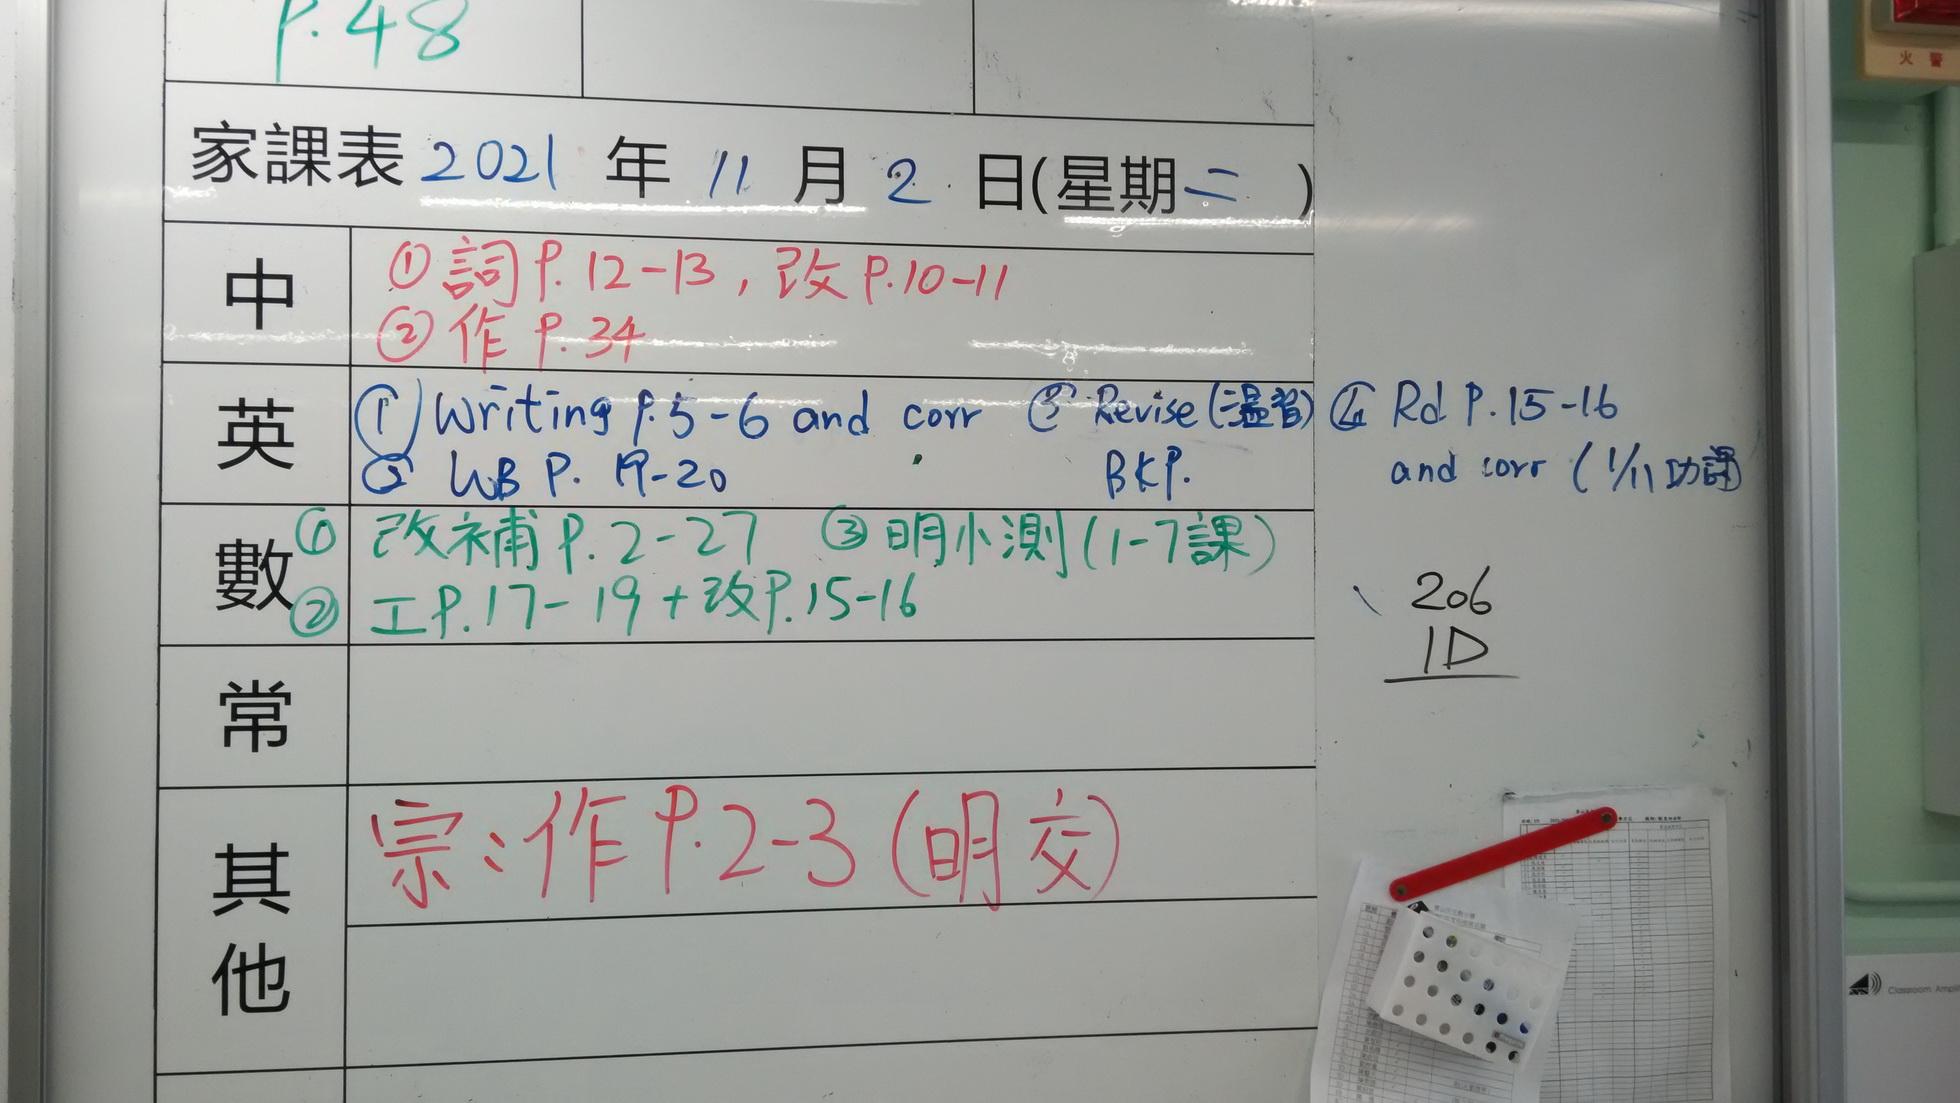 P.48
家課表 2021 年 11 月 2 日(星期二 )
中
① 詞 P.12-13, 改 P.10-11
② 作 P.34
英
① Writing P.5-6 and corr ③ Revise (溫習) ④ Rd P.15-16
② WB P. 19-20 BKP. and corr (1/11 功課)
數
① 改補 P.2-27 ③ 明小測 (1-7課)
② 工P.17-19 + 改P.15-16
常
其他
宗: 作 P.2-3 (明交)
206
1D
火警